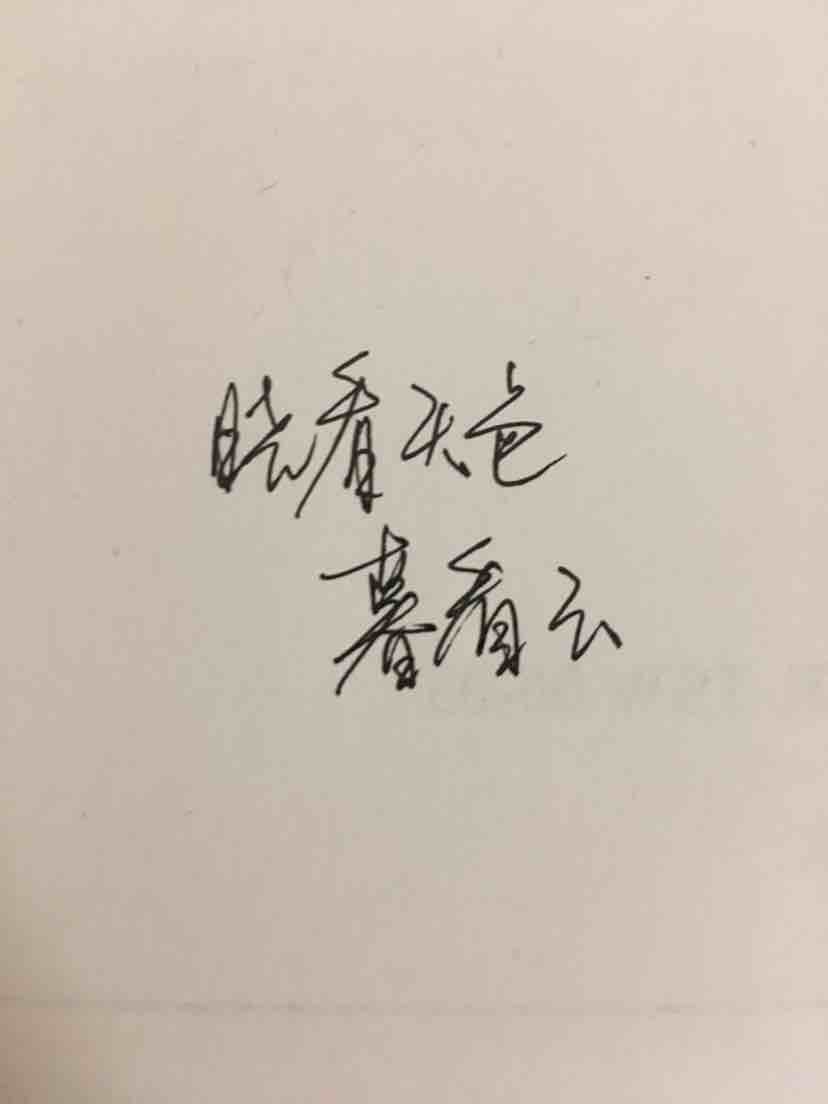 晓看天色
暮看云